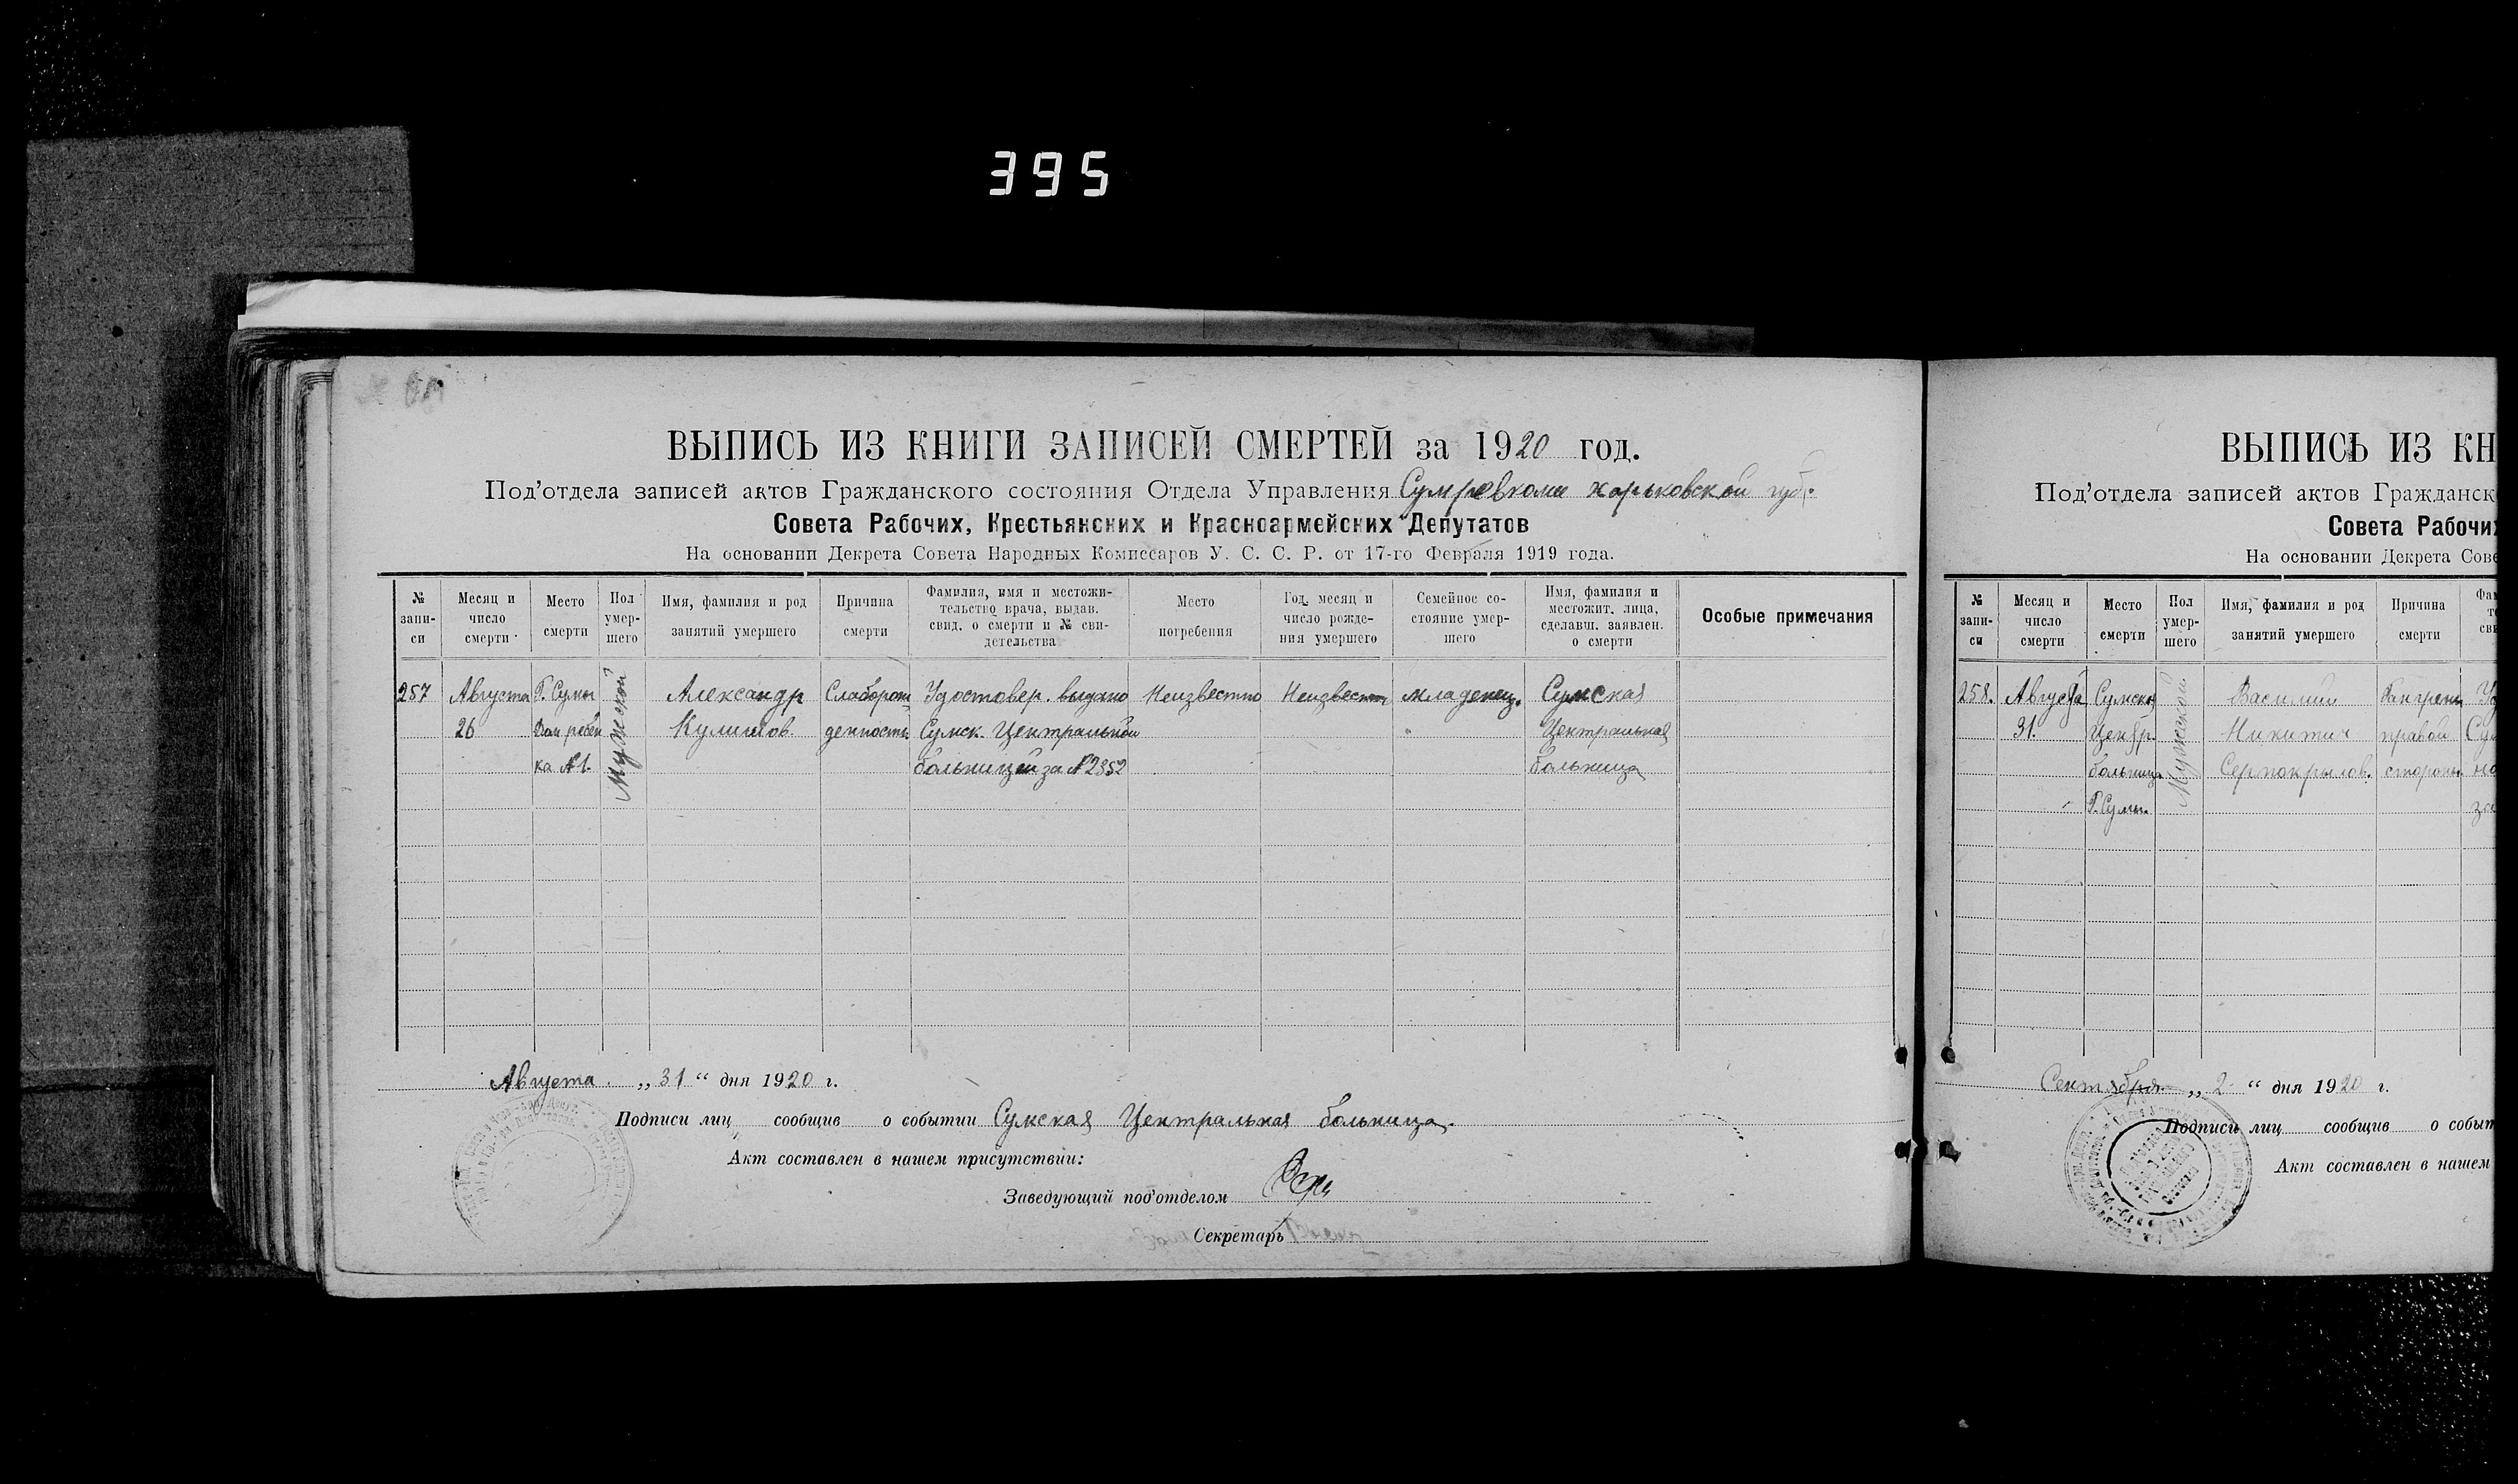 395
ВЫПИСЬ ИЗ КНИГИ ЗАПИСЕЙ СМЕРТЕЙ за 1920 год.
Под'отдела записей актов Гражданского состояния Отдела Управления Сумревкома харьковской губ.
Совета Рабочих, Крестьянских и Красноармейских Депутатов
На основании Декрета Совета Народных Комиссаров У. С. С. Р. от 17-го Февраля 1919 года.
№ запи-
си
Месяц и
число
смерти
Место
смерти
Пол
умер-
шего
Имя, фамилия и род
занятий умершего
Причина
смерти
Фамилия, имя и местожи-
тельство врача, выдав.
свид. о смерти и № сви-
детельства
Место
погребения
Год, месяц и
число рожде-
ния умершего
Семейное со-
стояние умер-
шего
Имя, фамилия и
местожит. лица,
сделавш. заявлен.
о смерти
Особые примечания
257
Августа
26
Г. Сумы
Дом ребен
ка №1.
Мужской
Александр
Слаборож
денность
Удостовер. выдано
Сумск. Центральной
больницей за №2352
Неизвестно
Неизвестно
младенец.
Сумская
Центральная
больница
Августа „31“ дня 1920 г.
Подписи лиц сообщив о событии Сумская Центральная больница.
Акт составлен в нашем присутствии:
Заведующий под'отделом
Секретарь
ВЫПИСЬ ИЗ КН
Под'отдела записей актов Гражданск
Совета Рабочих
На основании Декрета Сове
№
запи-
си
Месяц и
число
смерти
Место
смерти
Пол
умер-
шего
Имя, фамилия и род
занятий умершего
Причина
смерти
258.
Августа
31.
Сумская
Центр.
больница
Г. Сумы.
Мужской
Василий
Никитич
правой
стороны
Сентября „2“ дня 1920 г.
Подписи лиц сообщив о событ
Акт составлен в нашем